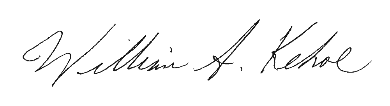 William A. Kehoe